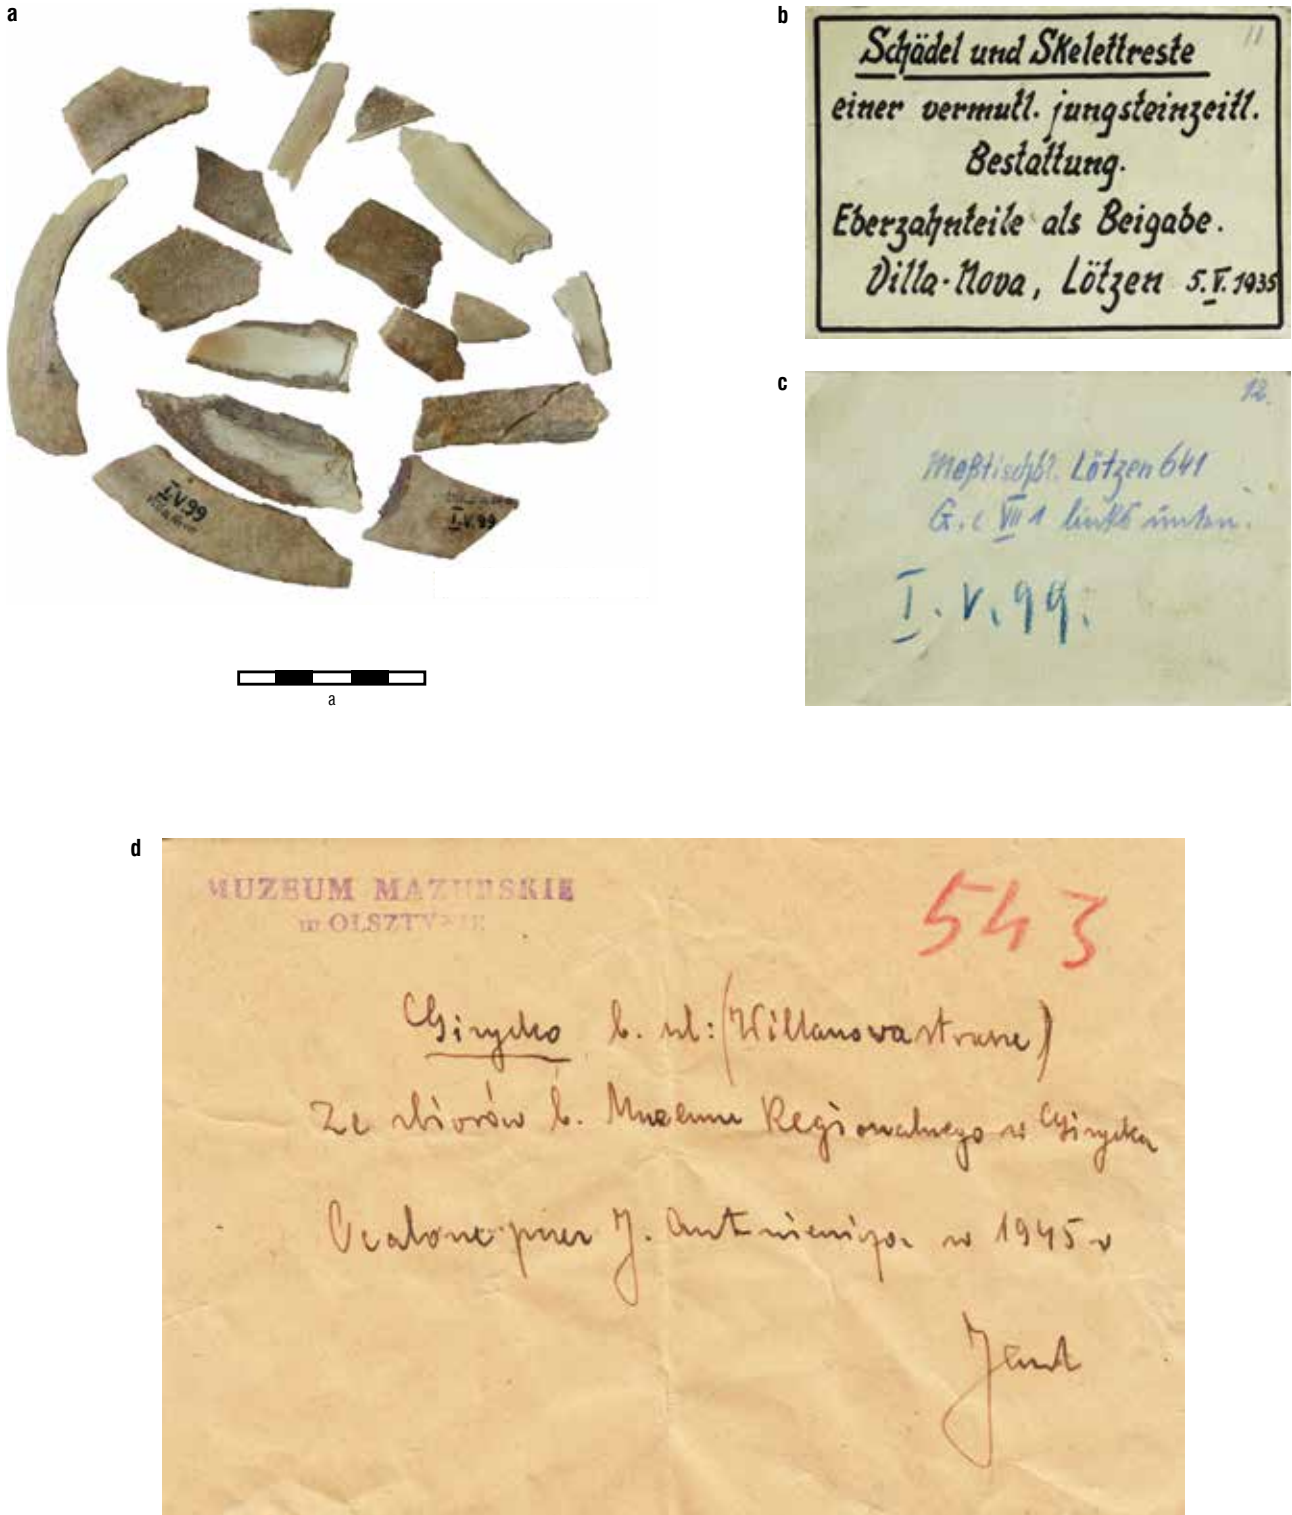 a
I.V.99
Villa Nova
I.V.99
a
b
11
Schädel und Skelettreste
einer vermutl. jungsteinzeitl.
Bestattung.
Eberzahnteile als Beigabe.
Villa-Nova, Lötzen 5.V.1935
c
12.
Meßtischbl. Lötzen 641
G.c VII 1 links unten.
I.V.99.
d
MUZEUM MAZURSKIE
w OLSZTYNIE
543
Giżycko b. ul: (Willanovastrasse)
Ze zbiorów b. Muzeum Regionalnego w Giżycku
Ocalone przez J. Antoniewicza w 1945 r